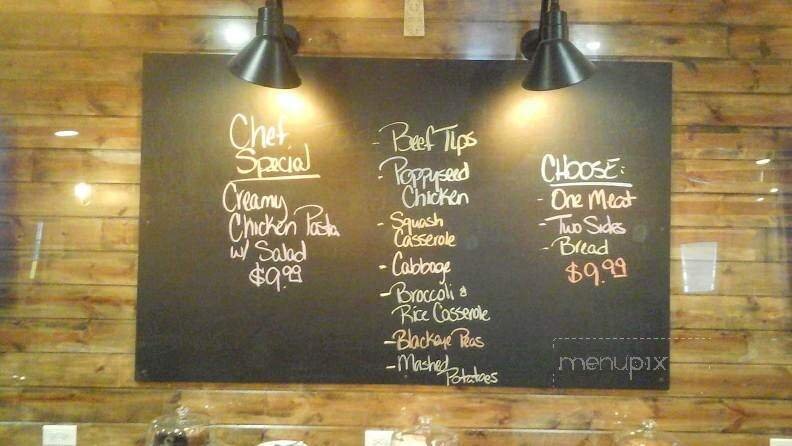 Chef
Special
Creamy
Chicken Pasta
w/ Salad
$9.99
- Beef Tips
- Poppyseed
Chicken
- Squash
Casserole
- Cabbage
- Broccoli &
Rice Casserole
- Blackeye Peas
- Mashed
Potatoes
CHOOSE:
- One Meat
- Two Sides
- Bread
$9.99
menupix